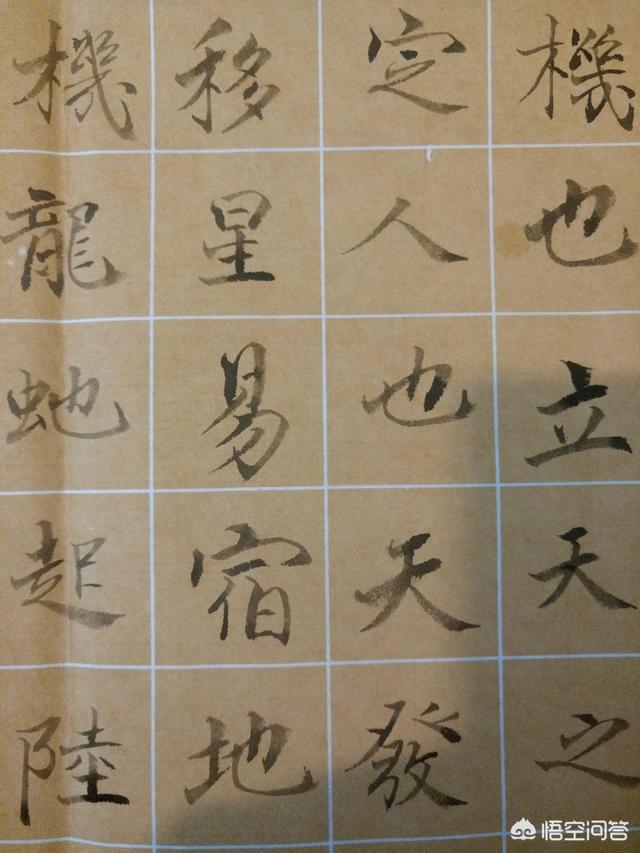 機也立天之
定人也天發
移星易宿地
機龍虵起陸
悟空问答